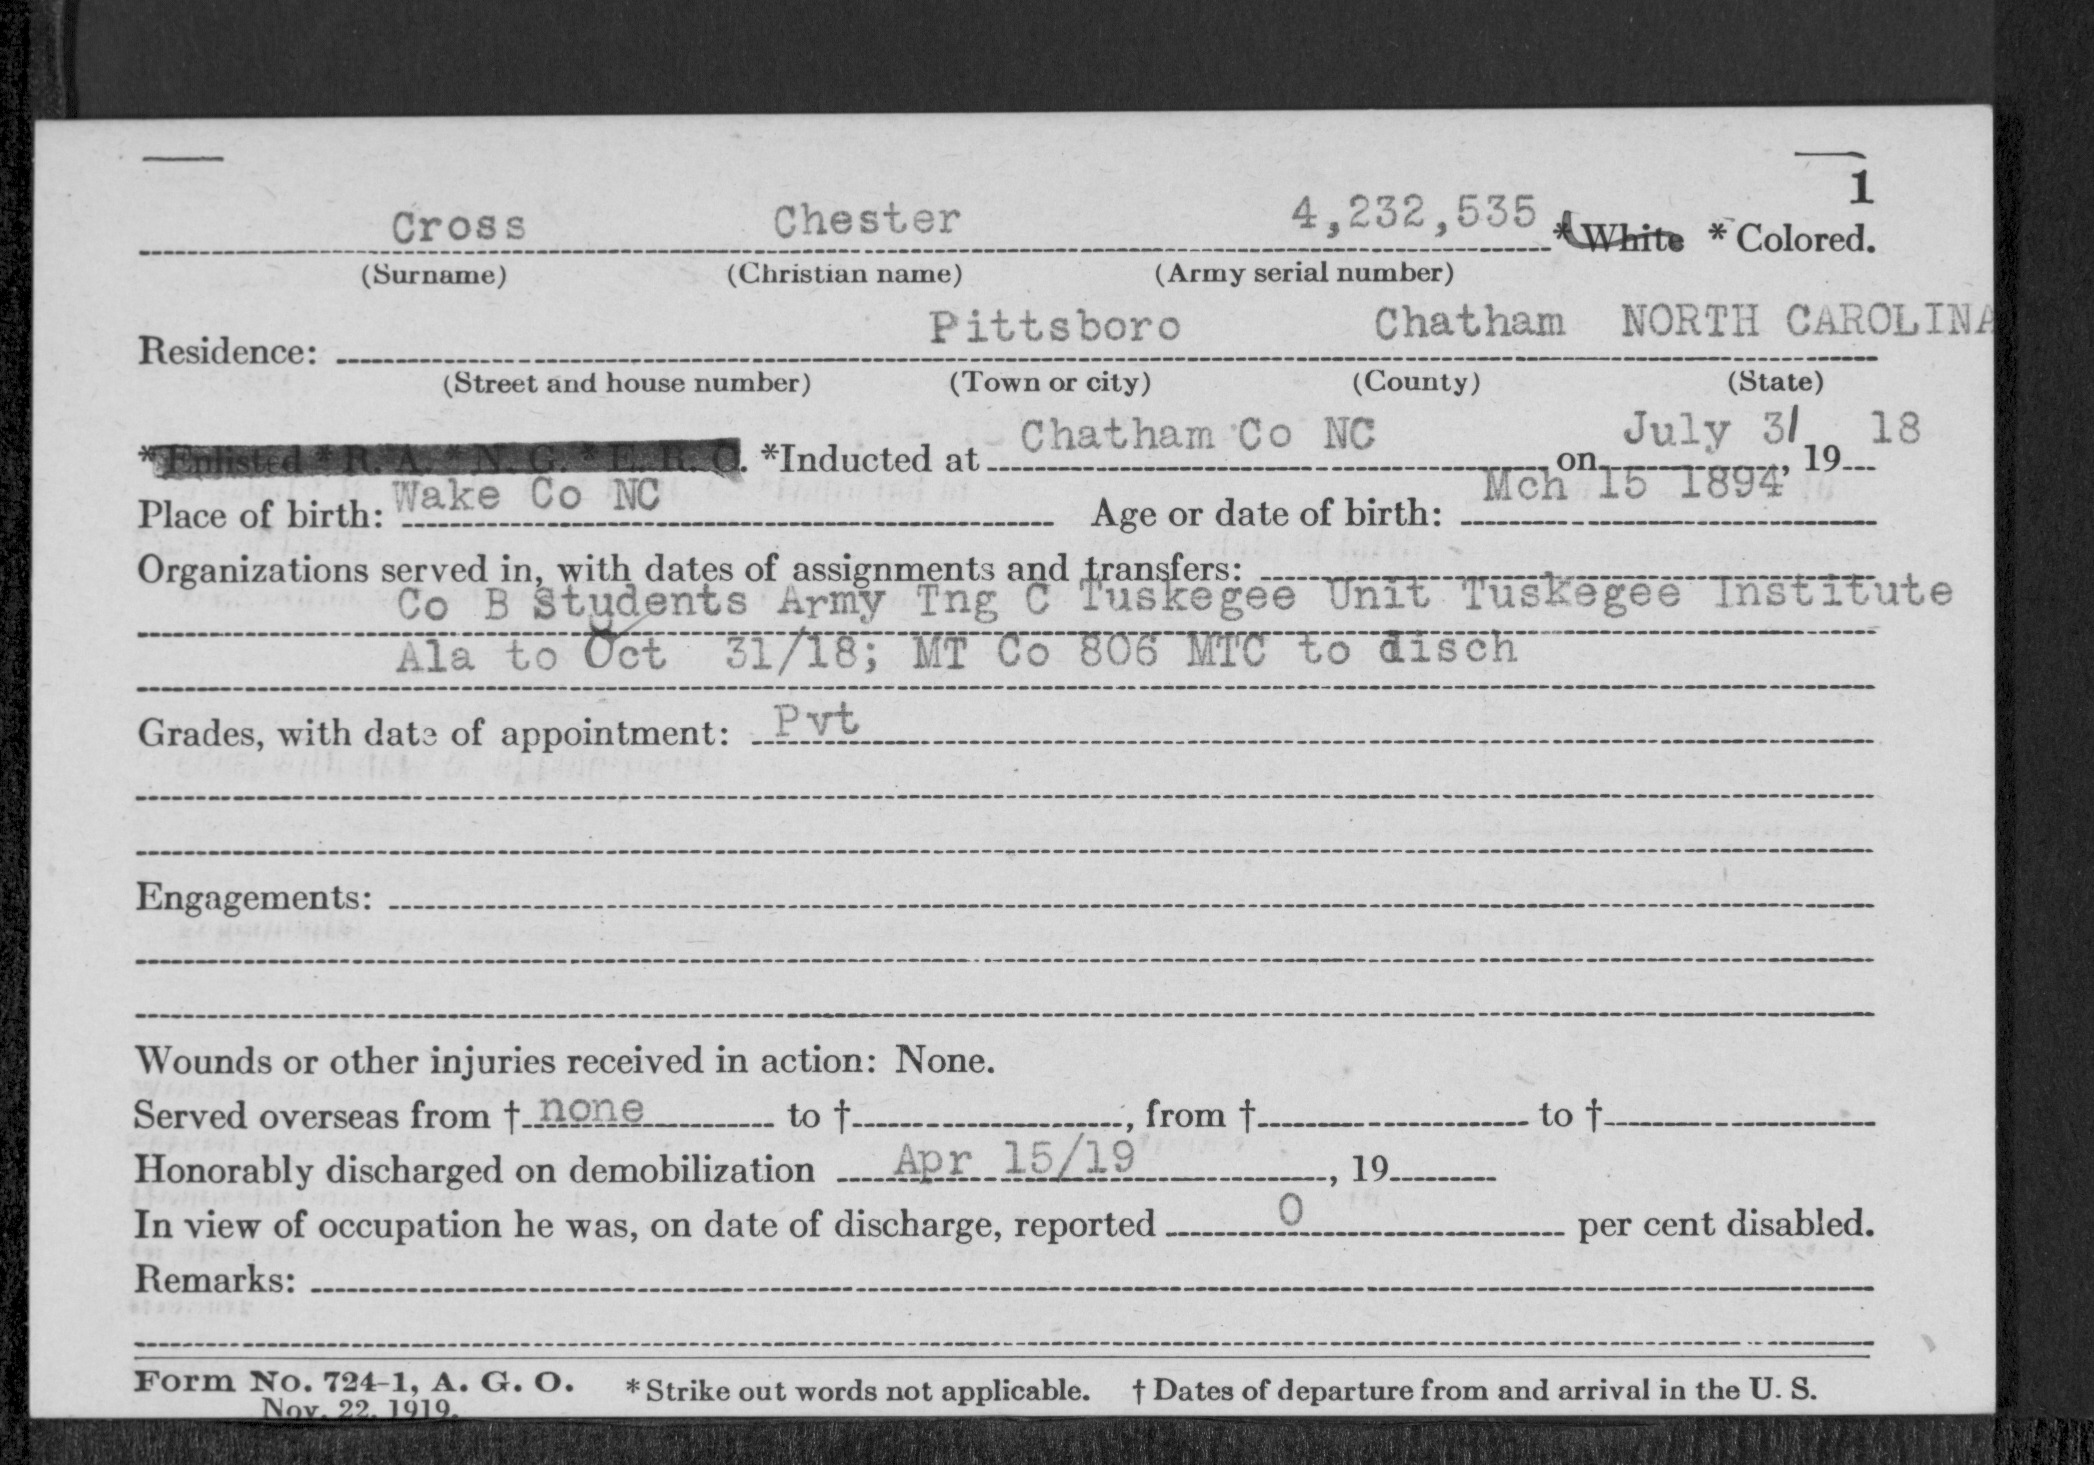 1
Cross Chester 4,232,535 *White *Colored.
(Surname) (Christian name) (Army serial number)
Residence: Pittsboro Chatham NORTH CAROLINA
(Street and house number) (Town or city) (County) (State)
*Enlisted *R. A. *N. G. *E. R. C. *Inducted at Chatham Co NC on July 31, 1918
Place of birth: Wake Co NC Age or date of birth: Mch 15 1894
Organizations served in, with dates of assignments and transfers:
Co B Students Army Tng C Tuskegee Unit Tuskegee Institute
Ala to Oct 31/18; MT Co 806 MTC to disch
Grades, with date of appointment: Pvt
Engagements:
Wounds or other injuries received in action: None.
Served overseas from † none to †, from † to †
Honorably discharged on demobilization Apr 15/19, 19
In view of occupation he was, on date of discharge, reported 0 per cent disabled.
Remarks:
Form No. 724-1, A. G. O. *Strike out words not applicable. † Dates of departure from and arrival in the U. S.
Nov. 22, 1919.